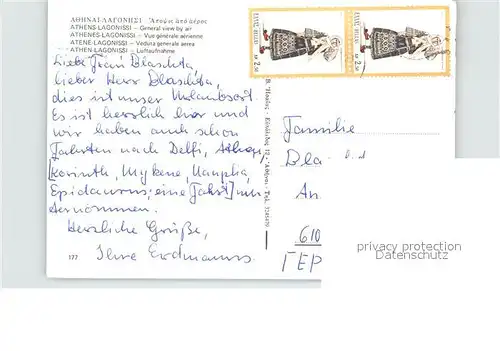 ΑΘΗΝΑΙ-ΛΑΓΟΝΗΣΙ Ἄποψις ἀπὸ ἀέρος
ATHENS-LAGONISSI – General view by air
ATHENES-LAGONISSI – Vue générale aérienne
ATENE-LAGONISSI – Veduta generale aerea
ATHEN-LAGONISSI – Luftaufnahme
Liebe Frau Blaschta,
lieber Herr Blaschta,
dies ist unser Urlaubsort.
Es ist herrlich hier und
wir haben auch schon
Fahrten nach Delfi, Athen,
[Korinth, Mykene, Nauplia,
Epidaurus; eine Fahrt] un-
ternommen.
Herzliche Grüße,
Ihre Erdmanns
177
2.50
2.50
Familie
Bla
An
610
ΓΕΡ
privacy protection
Datenschutz